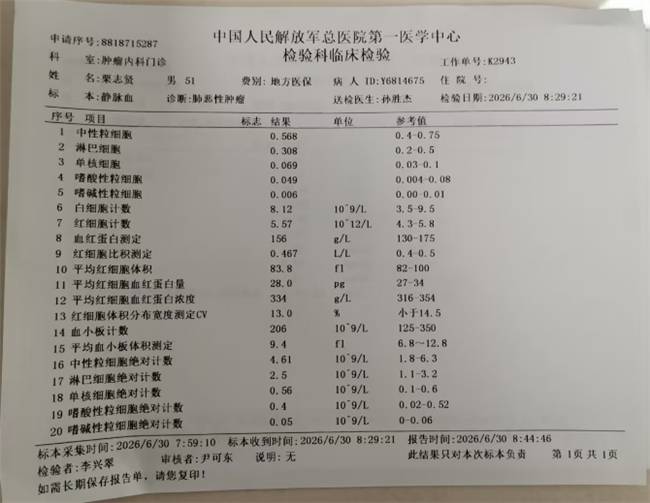 中国人民解放军总医院第一医学中心
申请序号:8818715287 检验科临床检验
科 室:肿瘤内科门诊 工作单号:K2943
姓 名:栗志贤 男 51 费别:地方医保 病 人 ID:Y6814675 住 院 号:
标 本:静脉血 诊断:肺恶性肿瘤 送检医生:孙胜杰 检验日期:2026/6/30 8:29:21
序号 项目 标志 结果 单位 参考值
1 中性粒细胞 0.568 0.4-0.75
2 淋巴细胞 0.308 0.2-0.5
3 单核细胞 0.069 0.03-0.1
4 嗜酸性粒细胞 0.049 0.004-0.08
5 嗜碱性粒细胞 0.006 0.00-0.01
6 白细胞计数 8.12 10^9/L 3.5-9.5
7 红细胞计数 5.57 10^12/L 4.3-5.8
8 血红蛋白测定 156 g/L 130-175
9 红细胞比积测定 0.467 L/L 0.4-0.5
10 平均红细胞体积 83.8 fl 82-100
11 平均红细胞血红蛋白量 28.0 pg 27-34
12 平均红细胞血红蛋白浓度 334 g/L 316-354
13 红细胞体积分布宽度测定CV 13.0 % 小于14.5
14 血小板计数 206 10^9/L 125-350
15 平均血小板体积测定 9.4 fl 6.8～12.8
16 中性粒细胞绝对计数 4.61 10^9/L 1.8-6.3
17 淋巴细胞绝对计数 2.5 10^9/L 1.1-3.2
18 单核细胞绝对计数 0.56 10^9/L 0.1-0.6
19 嗜酸性粒细胞绝对计数 0.4 10^9/L 0.02-0.52
20 嗜碱性粒细胞绝对计数 0.05 10^9/L 0-0.06
标本采集时间:2026/6/30 7:59:10 标本收到时间:2026/6/30 8:29:21 报告时间:2026/6/30 8:44:46
检验者:李兴翠 审核者:尹可东 说明:无 此结果只对本次标本负责 第1页 共1页
如需长期保存报告单,请您复印!